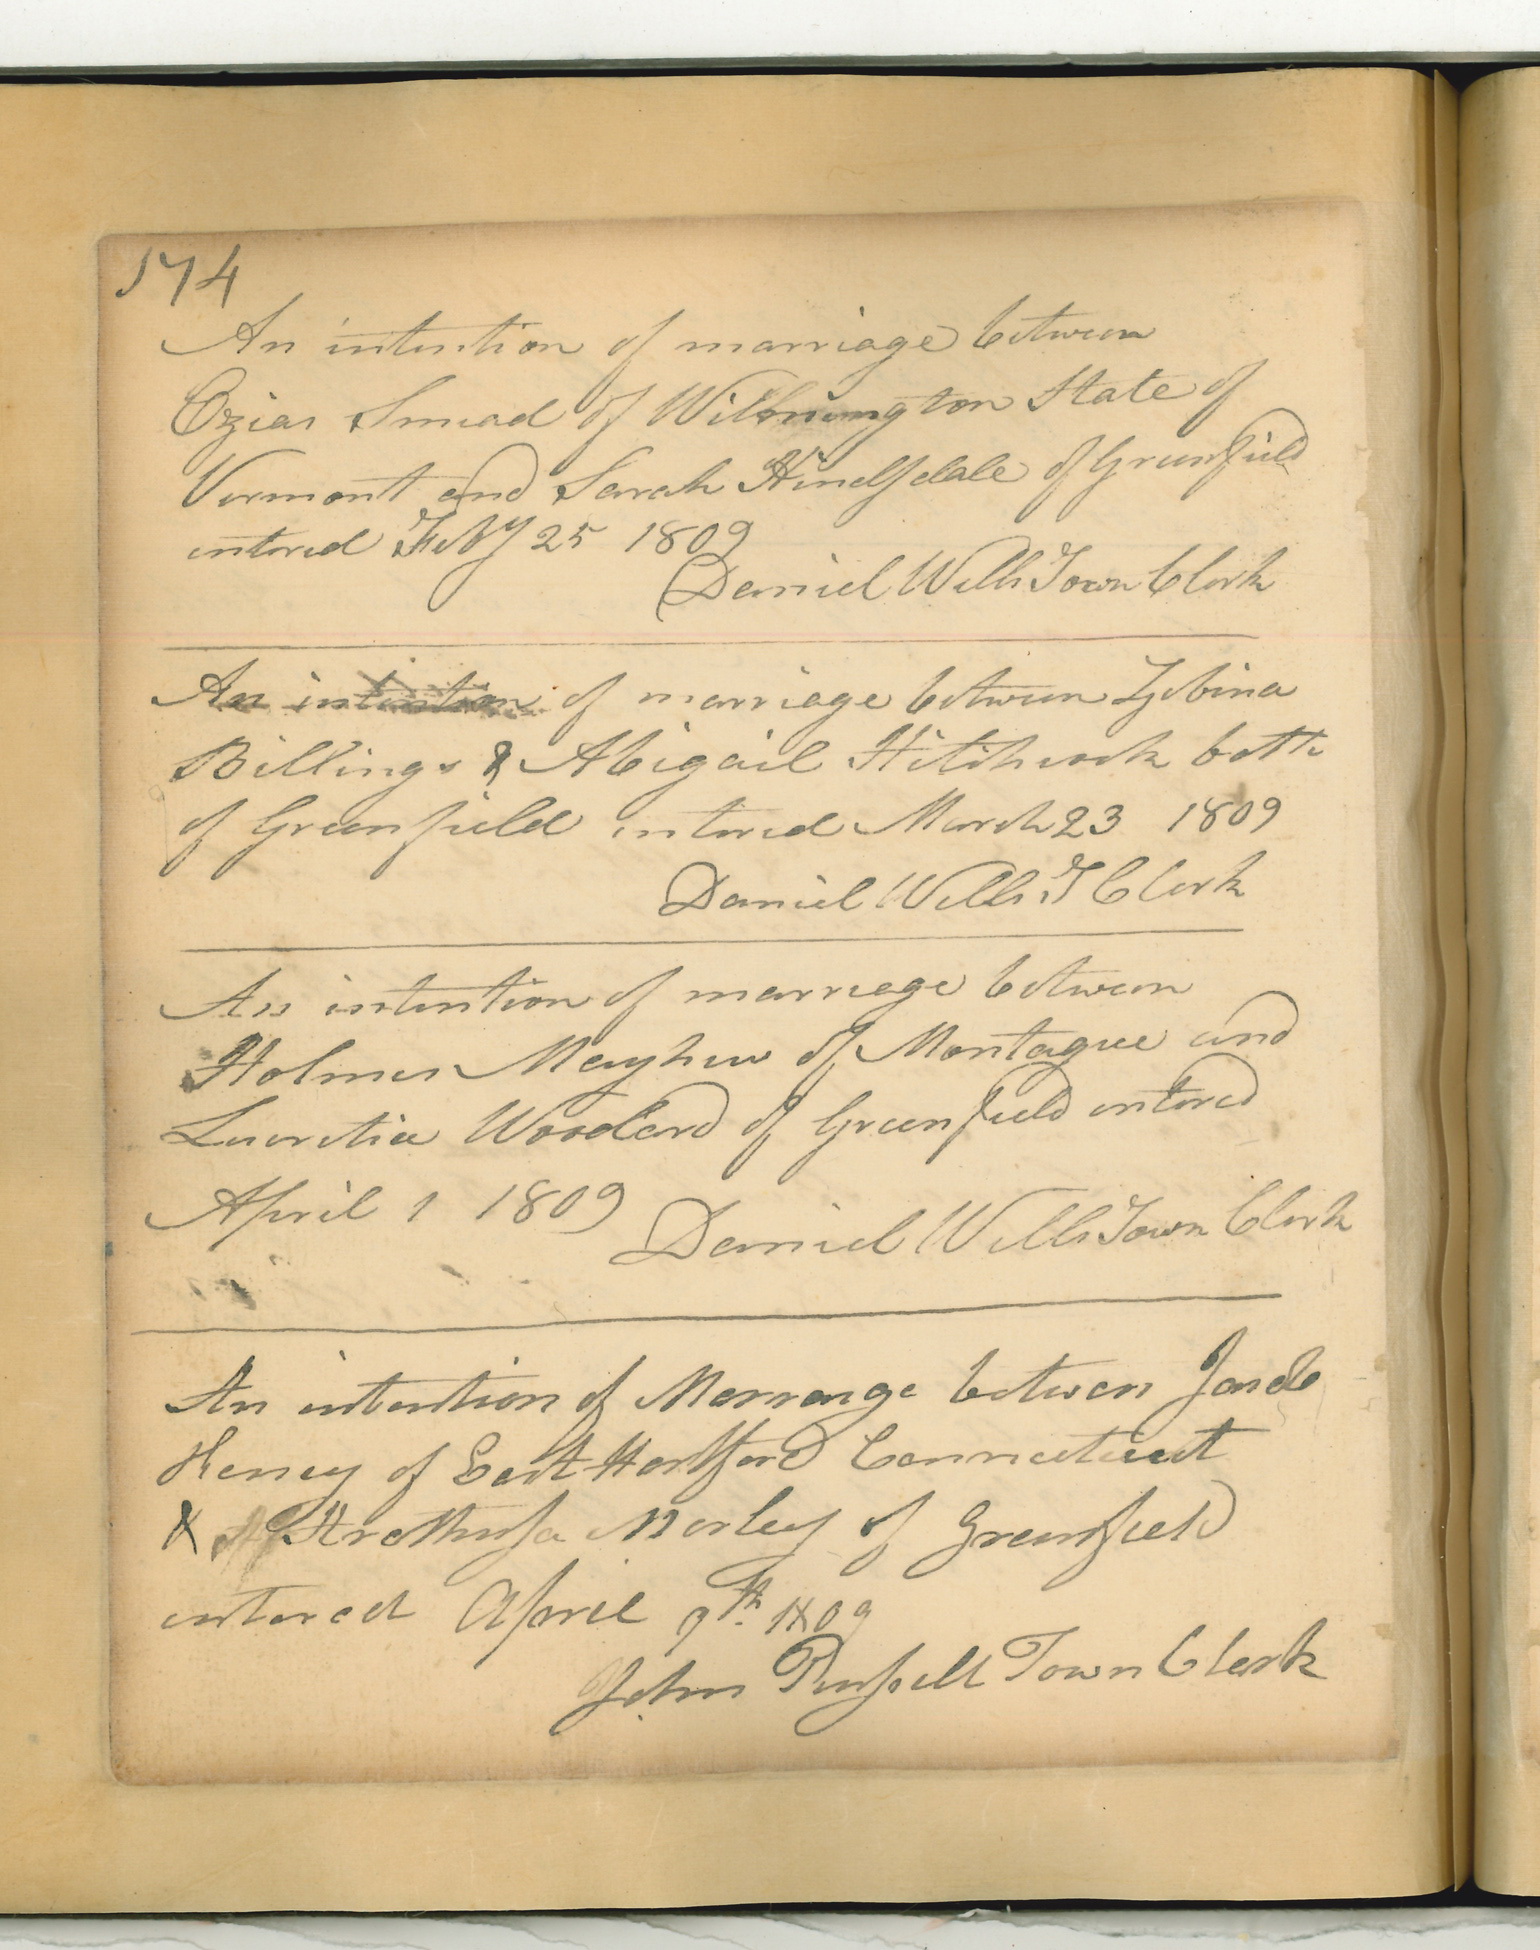 174
An intention of marriage between
Ozias Smead of Wilmington State of
Vermont and Sarah Hinelsdale of Greenfield
entered Feby 25 1809
Daniel Wells Town Clerk
An intention of marriage between Zebina
Billings & Abigail Hitchcock both
of Greenfield entered March 23 1809
Daniel Wells T Clerk
An intention of marriage between
Holmes Mayhew of Montague and
Lucretia Woodard of Greenfield entered
April 1 1809 Daniel Wells Town Clerk
An intention of Marrange between
Heney of East Hartford Connecticut
& Arethusa Morley of Greenfield
entered April 9th 1809
John Russell Town Clerk